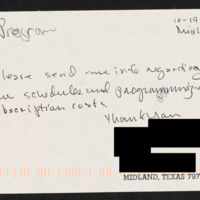 10-19
Program
Midl
lease send me info regarding
ur schedules and programming
bscription costs.
Thank You
MIDLAND, TEXAS 797